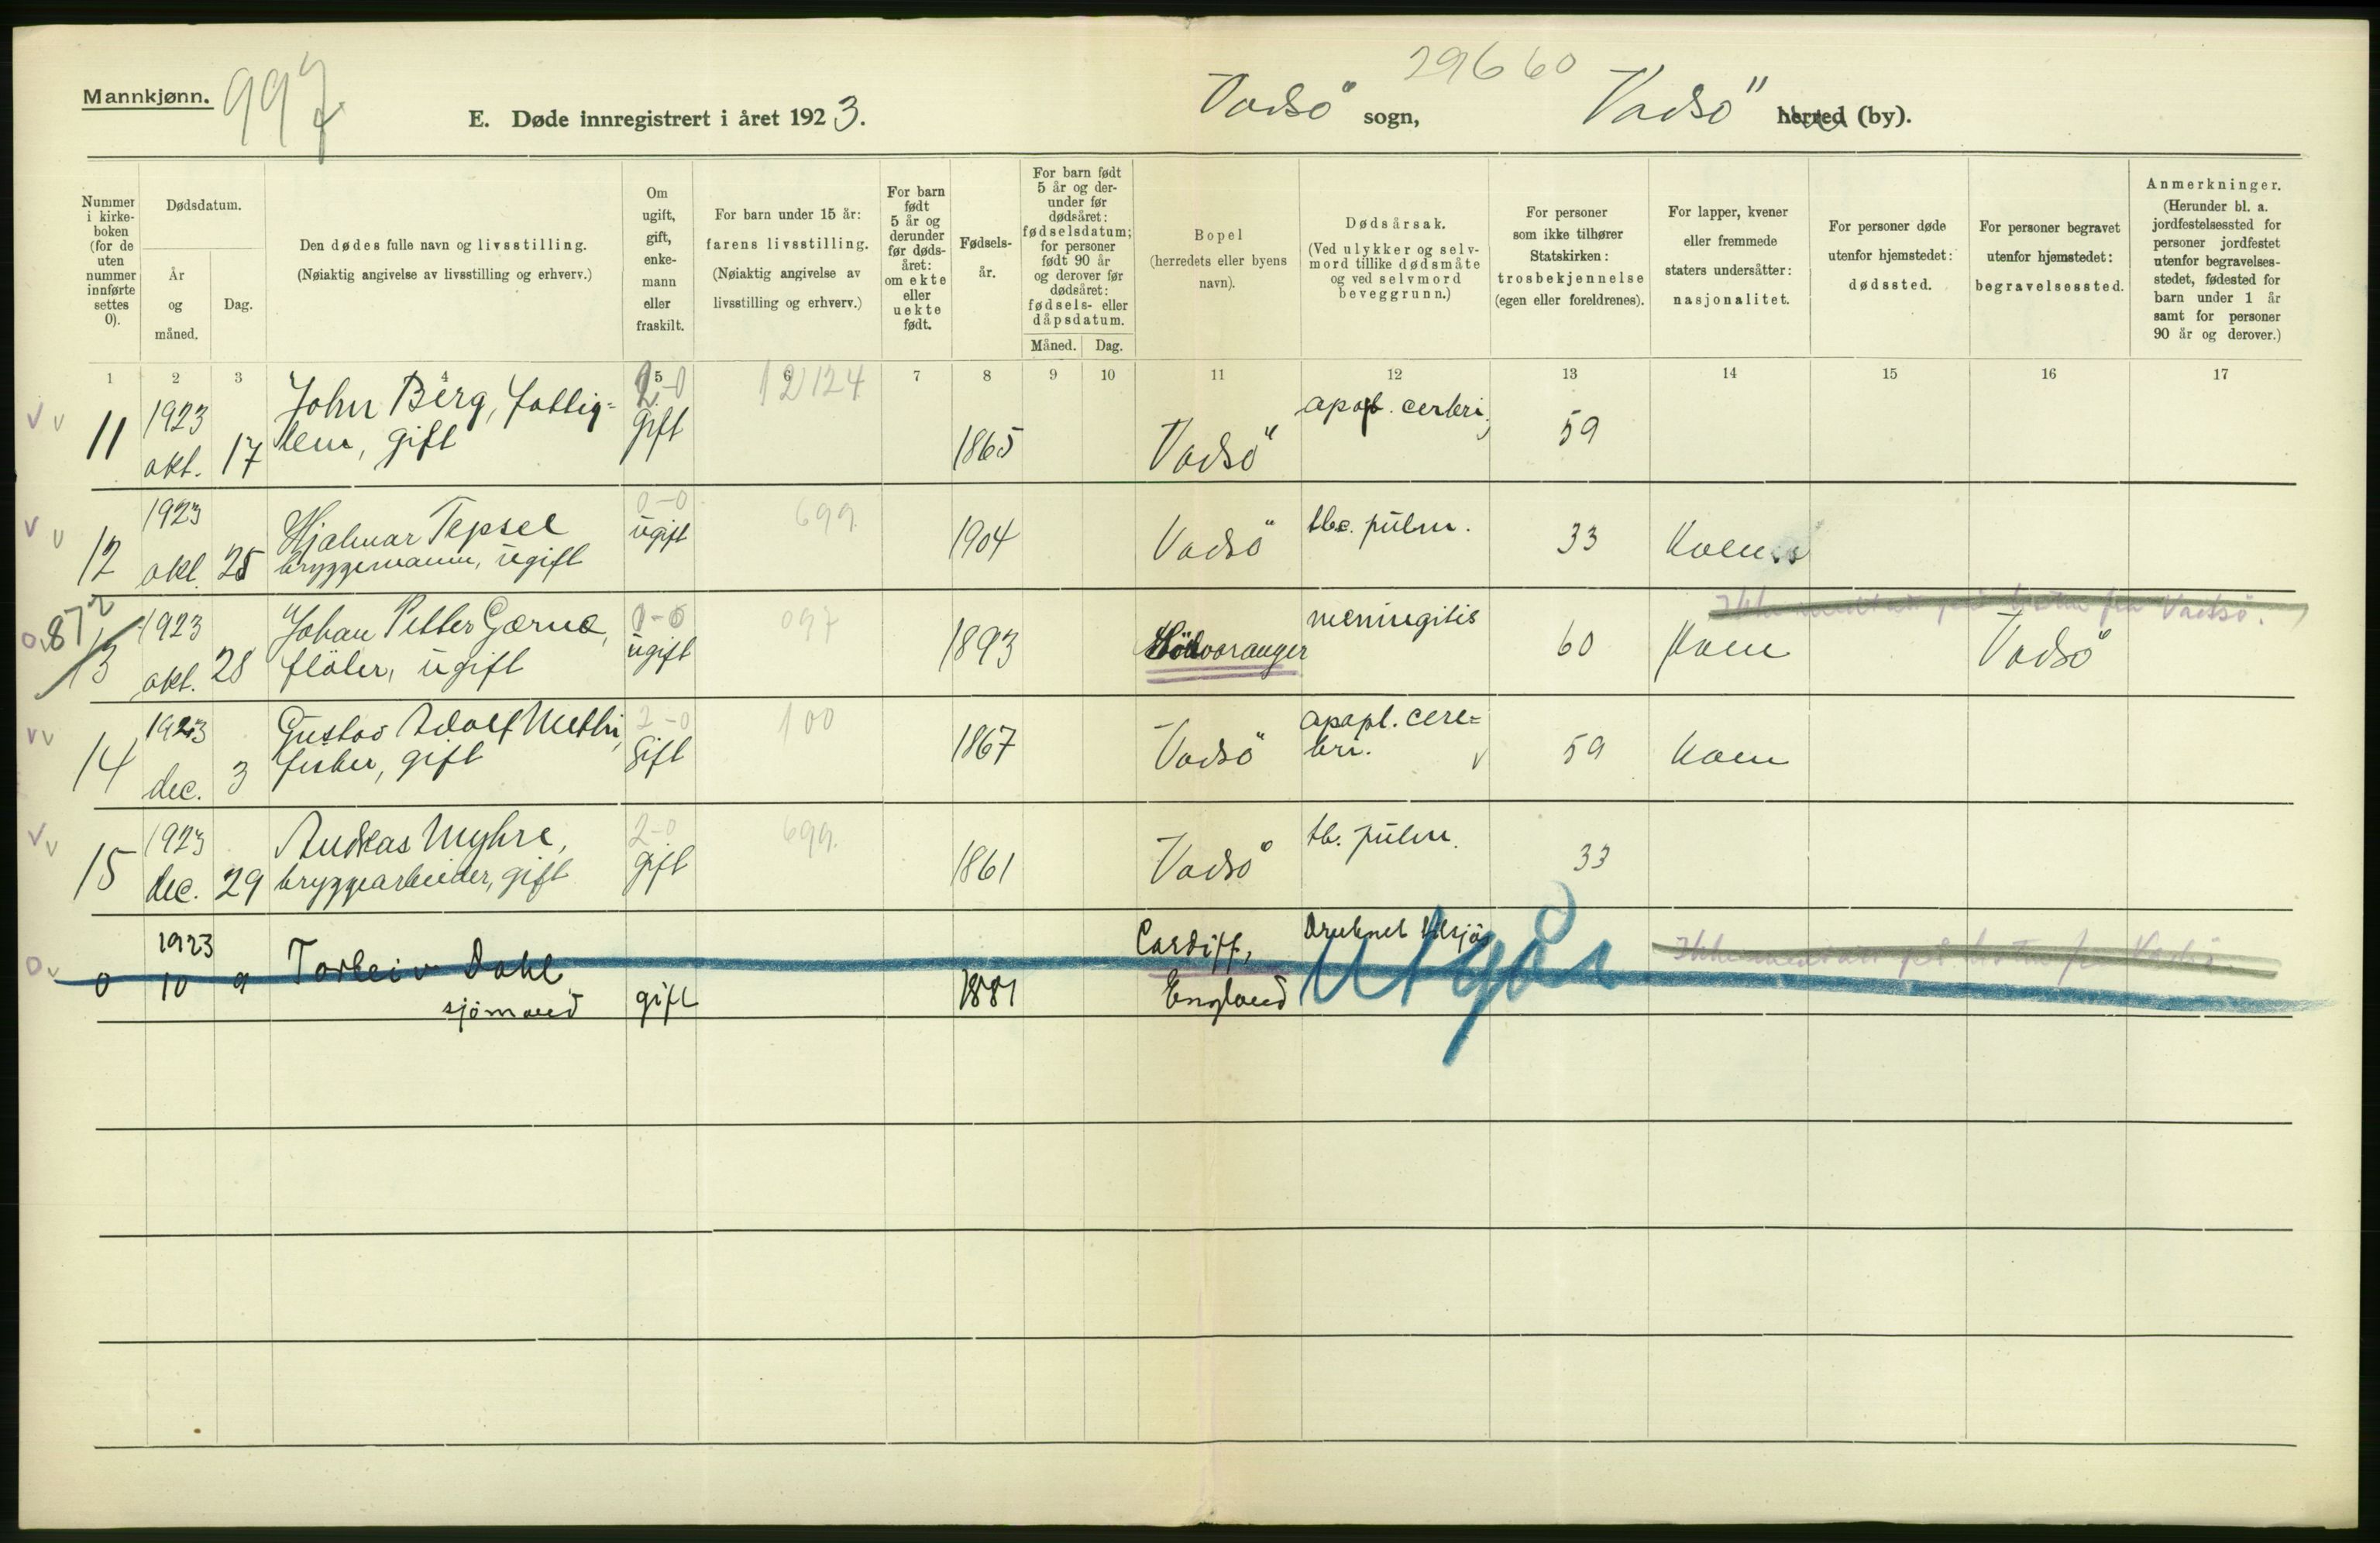 Mannkjønn.
997
29660
E. Døde innregistrert i året 1923.
Vadsö sogn,
Vadsö herred (by).
Nummer i kirke-boken (for de uten nummer innførte settes 0).
Dødsdatum.
År og måned.
Dag.
Den dødes fulle navn og livsstilling.
(Nøiaktig angivelse av livsstilling og erhverv.)
Om ugift, gift, enke-mann eller fraskilt.
For barn under 15 år: farens livsstilling.
(Nøiaktig angivelse av livsstilling og erhverv.)
For barn født 5 år og derunder før døds-året: om ekte eller uekte født.
Fødsels-år.
For barn født 5 år og der-under før dødsåret: fødselsdatum; for personer født 90 år og derover før dødsåret: fødsels- eller dåpsdatum.
Måned.
Dag.
Bopel
(herredets eller byens navn).
Dødsårsak.
(Ved ulykker og selv-mord tillike dødsmåte og ved selvmord beveggrunn.)
For personer som ikke tilhører Statskirken: trosbekjennelse (egen eller foreldrenes).
For lapper, kvener eller fremmede staters undersåtter: nasjonalitet.
For personer døde utenfor hjemstedet: dødssted.
For personer begravet utenfor hjemstedet: begravelsessted.
Anmerkninger.
(Herunder bl. a. jordfestelsessted for personer jordfestet utenfor begravelses-stedet, fødested for barn under 1 år samt for personer 90 år og derover.)
1 2 3 4 5 6 7 8 9 10 11 12 13 14 15 16 17
11 1923 okt. 17 John Berg, fattig=
lem, gift 2-0 gift 12124 1865 Vadsö apopl. cerbri, 59
12 1923 okt. 25 Hjalmar Tepsel
bryggemann, ugift 0-0 ugift 699 1904 Vadsö tbc. pulm. 33 Kven
872
13 1923 okt. 28 Johan Petter Gærna,
fløter, ugift 0-0 ugift 097 1893 Södvaranger meningitis 60 Kven Vadsö
Ikke mottatt på listen fra Vadsö.
14 1923 dec. 3 Gustav Adolf Mathi,
fisker, gift 2-0 gift 100 1867 Vadsö apopl. cere=
bri. 59 Kven
15 1923 dec. 29 Andreas Myhre,
bryggearbeider, gift 2-0 gift 699 1861 Vadsö tb. pulm. 33
0 1923 10 9 Torleiv Dahl
sjömand gift 1881 Cardiff,
England Druknet tilsjøs
Utgår